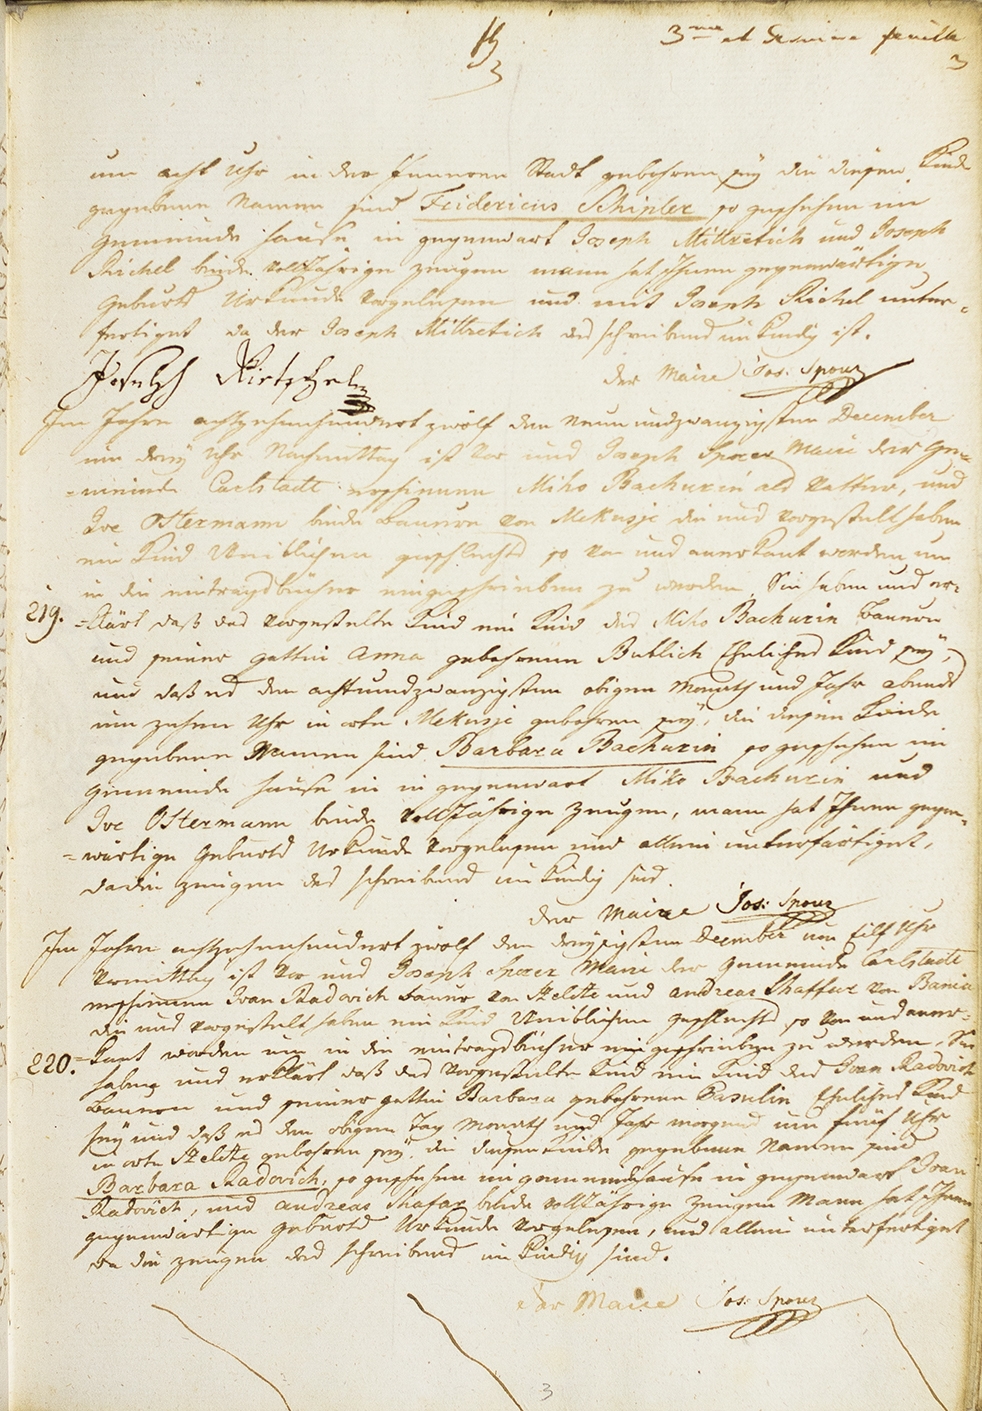 3me et dernière feuille
3
um acht Uhr in der inneren Stadt gebohren seÿ die diesem Kinde
gegebene Namen sind Fridericus Schipler so geschehen im
Gemeinde Hause in gegenwart Joseph Millretich und Joseph
Richel beide volljährige Zeugen mann hat Ihnen gegenwärtige
Geburts Urkunde vorgelesen und mit Joseph Richel unter-
fertiget da der Joseph Millretich des schreibens unkundig ist.
Joseph Rietschel der Maire Jos: Sporer
Im Jahre achtzehenhundert zwölf den neun und zwanzigsten December
um dreÿ Uhr Nachmittag ist vor uns Joseph Sporer Maire der Ge-
=meinde Carlstadt erschienen Miko Bachurin als Vatter, und
Ive Ostermann beide Bauern von Mekusje die uns vorgestellt haben
ein Kind Weiblichen geschlechts so von uns anerkant worden um
in die eintragsbücher eingeschrieben zu werden. Sie haben uns er-
219. =klärt daß das vorgestelte Kind ein Kind des Miko Bachurin Bauern
und seiner gattin Anna gebohrnen Bublich Eheliches Kind seÿ,
und daß es den achtundzwanzigsten obigen Monaths und Jahr abends
um zehen Uhr in orte Mekusje gebohren seÿ, die diesem Kinde
gegebene Namen sind Barbara Bachurin so geschehen im
Gemeinde Hause in in gegenwart Miko Bachurin und
Ive Ostermann beide volljährige Zeugen, mann hat Ihnen gegen-
=wärtige Geburts Urkunde vorgelesen und allein unterfärtiget,
da die Zeugen des schreibens unkundig sind.
der Maire Jos: Sporer
Im Jahre achtzehenhundert zwölf den dreÿsigsten December um Eilf Uhr
Vormittag ist vor uns Joseph Sporer Maire der Gemeinde Carlstadt
erschienen Ivan Radovich Bauer von Stelite und Andreas Shaffar von Bania
die uns vorgestelt haben ein Kind Weiblichen geschlechts so von uns aner-
220. =kant worden um in die eintragsbücher eingeschrieben zu werden. Sie
haben uns erklärt daß das vorgestelte Kind ein Kind des Ivan Radovich
Bauern und seiner gattin Barbara gebohrnen Eheliches Kind
seÿ und daß es den obigen Tag Monath und Jahr morgens um fünf Uhr
in orte Stelite gebohren seÿ, die diesem Kinde gegebene Namen sind
Barbara Radovich, so geschehen im gemeindehause in gegenwart Ivan
Radovich, und Andreas Shafar beide volljährige Zeugen Mann hat Ihnen
gegenwärtige Geburts Urkunde vorgelesen, und allein unterfertiget
da die Zeugen des schreibens unkundig sind.
der Maire Jos: Sporer
3